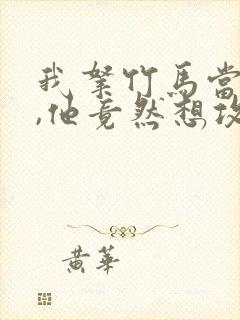 我拏竹馬當
,他竟然想攻
黃華